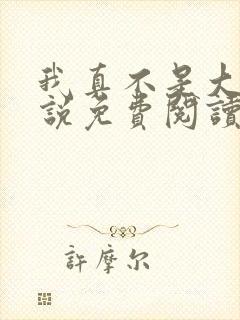 我真不是大
說免費閱讀
許摩尔